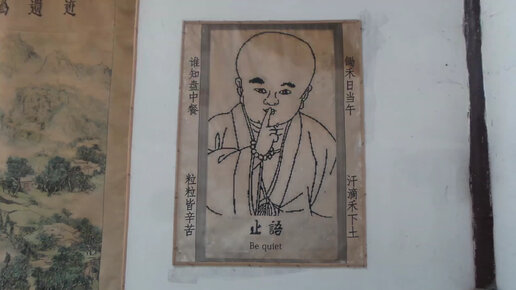 鋤禾日当午
汗滴禾下土
谁知盘中餐
粒粒皆辛苦
止語
Be quiet